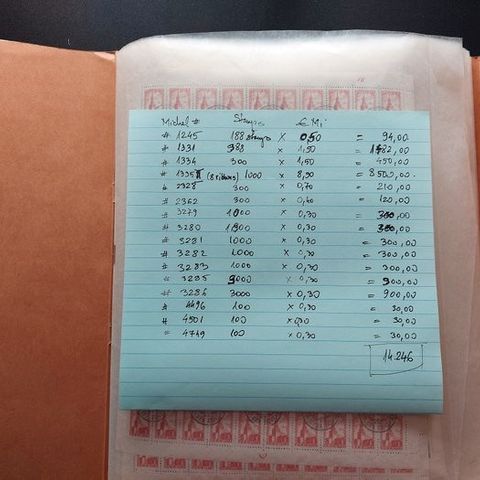 Michel # Stamps € Mi
# 1245 188 stamps × 0,50 = 94,00
# 1331 988 × 1,50 = 1482,00
# 1334 300 × 1,50 = 450,00
# 1335 II 1000 × 8,50 = 8500,00
# 2328 300 × 0,70 = 210,00
# 2362 300 × 0,40 = 120,00
# 3279 1000 × 0,30 = 300,00
# 3280 1000 × 0,30 = 300,00
# 3281 1000 × 0,30 = 300,00
# 3282 1000 × 0,30 = 300,00
# 3283 1000 × 0,30 = 300,00
# 3285 3000 × 0,30 = 900,00
# 3286 3000 × 0,30 = 900,00
# 4496 100 × 0,30 = 30,00
# 4501 100 × 0,30 = 30,00
= 4749 100 × 0.30 = 30,00
14.246